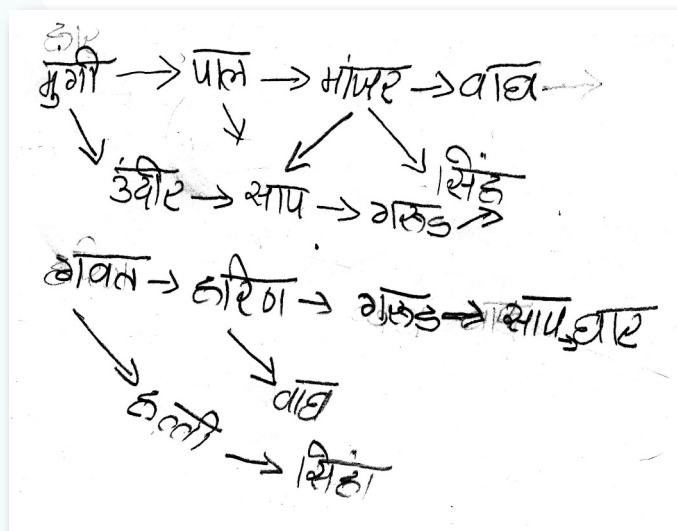 मुंगी → पाल → मांजर → वाघ →
उंदीर → साप → गरुड → सिंह
गवत → हरिण → गरुड → साप → घार
हत्ती → वाघ
सिंह